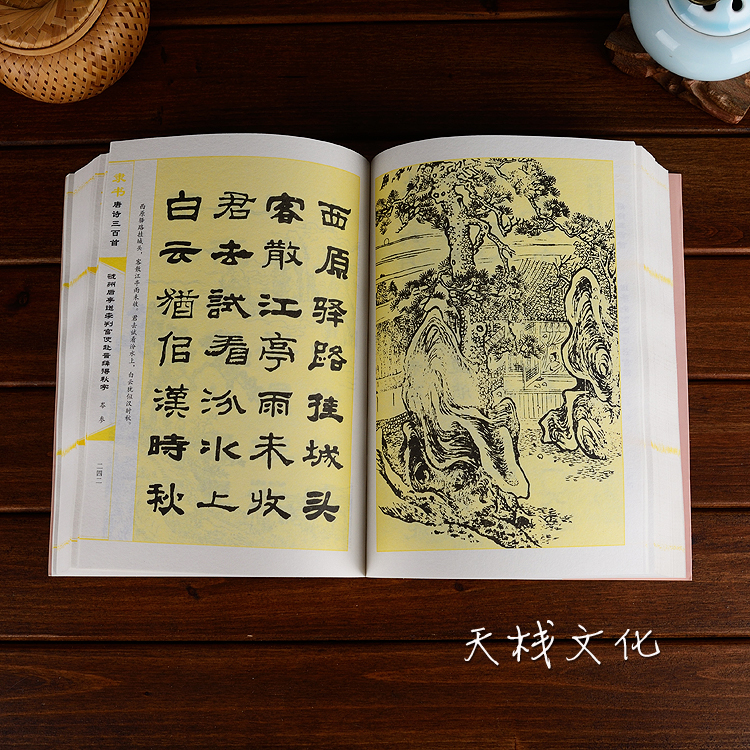 西原驿路挂城头
客散江亭雨未收
君去試看汾水上
白云猶佀漢時秋
西原驿路挂城头，客散江亭雨未收。君去試看汾水上，白云犹似汉时秋。
隶书 唐诗三百首
虢州后亭送李判官使赴晋绛得秋字 岑参
二四二
天栈文化